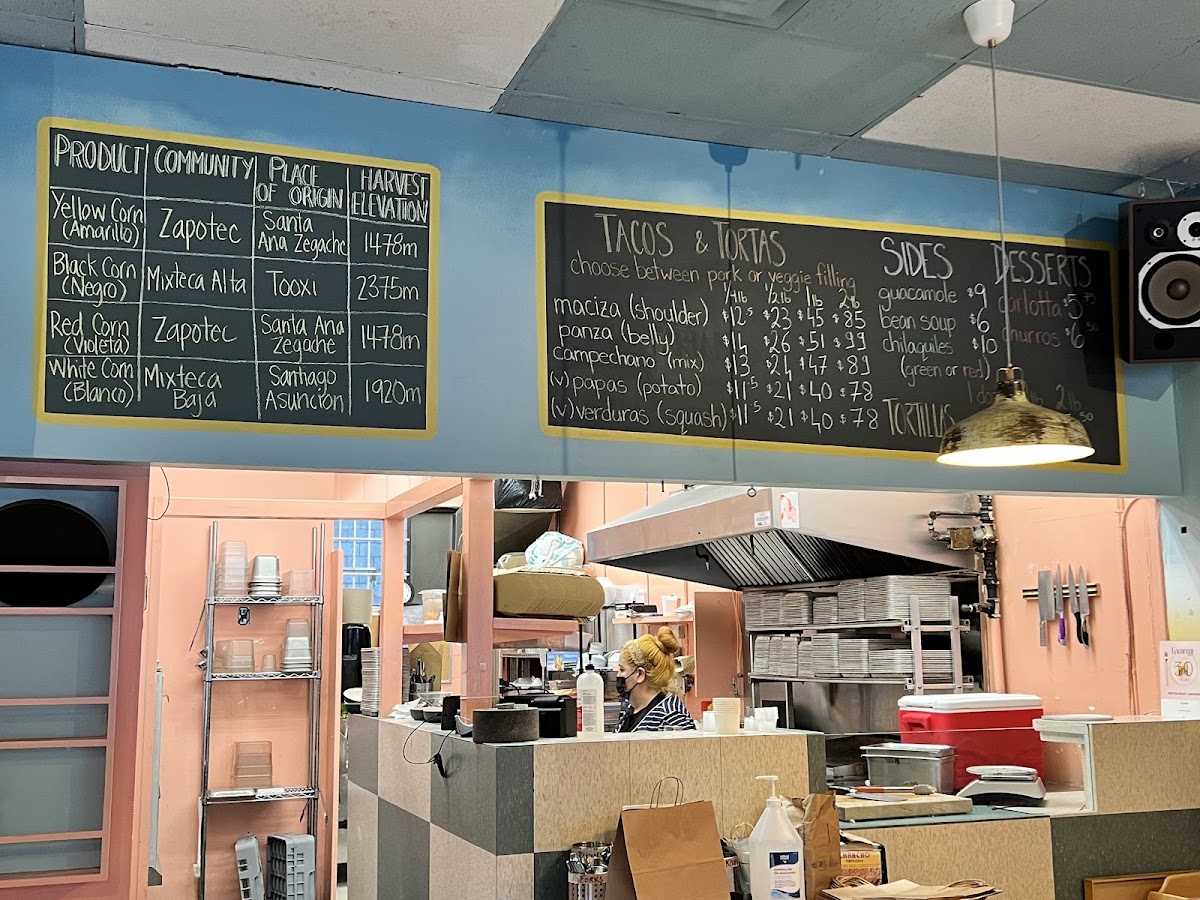 PRODUCT COMMUNITY PLACE OF ORIGIN HARVEST ELEVATION
Yellow Corn (Amarillo) Zapotec Santa Ana Zegache 1478m
Black Corn (Negro) Mixteca Alta Tooxi 2375m
Red Corn (Violeta) Zapotec Santa Ana Zegache 1478m
White Corn (Blanco) Mixteca Baja Santiago Asunción 1920m
TACOS & TORTAS
choose between pork or veggie filling
1/4lb 1/2lb 1lb 2lb
maciza (shoulder) $12.5 $23 $45 $85
panza (belly) $14 $26 $51 $99
campechano (mix) $13 $24 $47 $89
(v) papas (potato) $11.5 $21 $40 $78
(v) verduras (squash) $11.5 $21 $40 $78
SIDES
guacamole $9
bean soup $6
chilaquiles $10
(green or red)
DESSERTS
carlotta $5.75
churros $6.50
TORTILLAS
2lb
50
FORKS